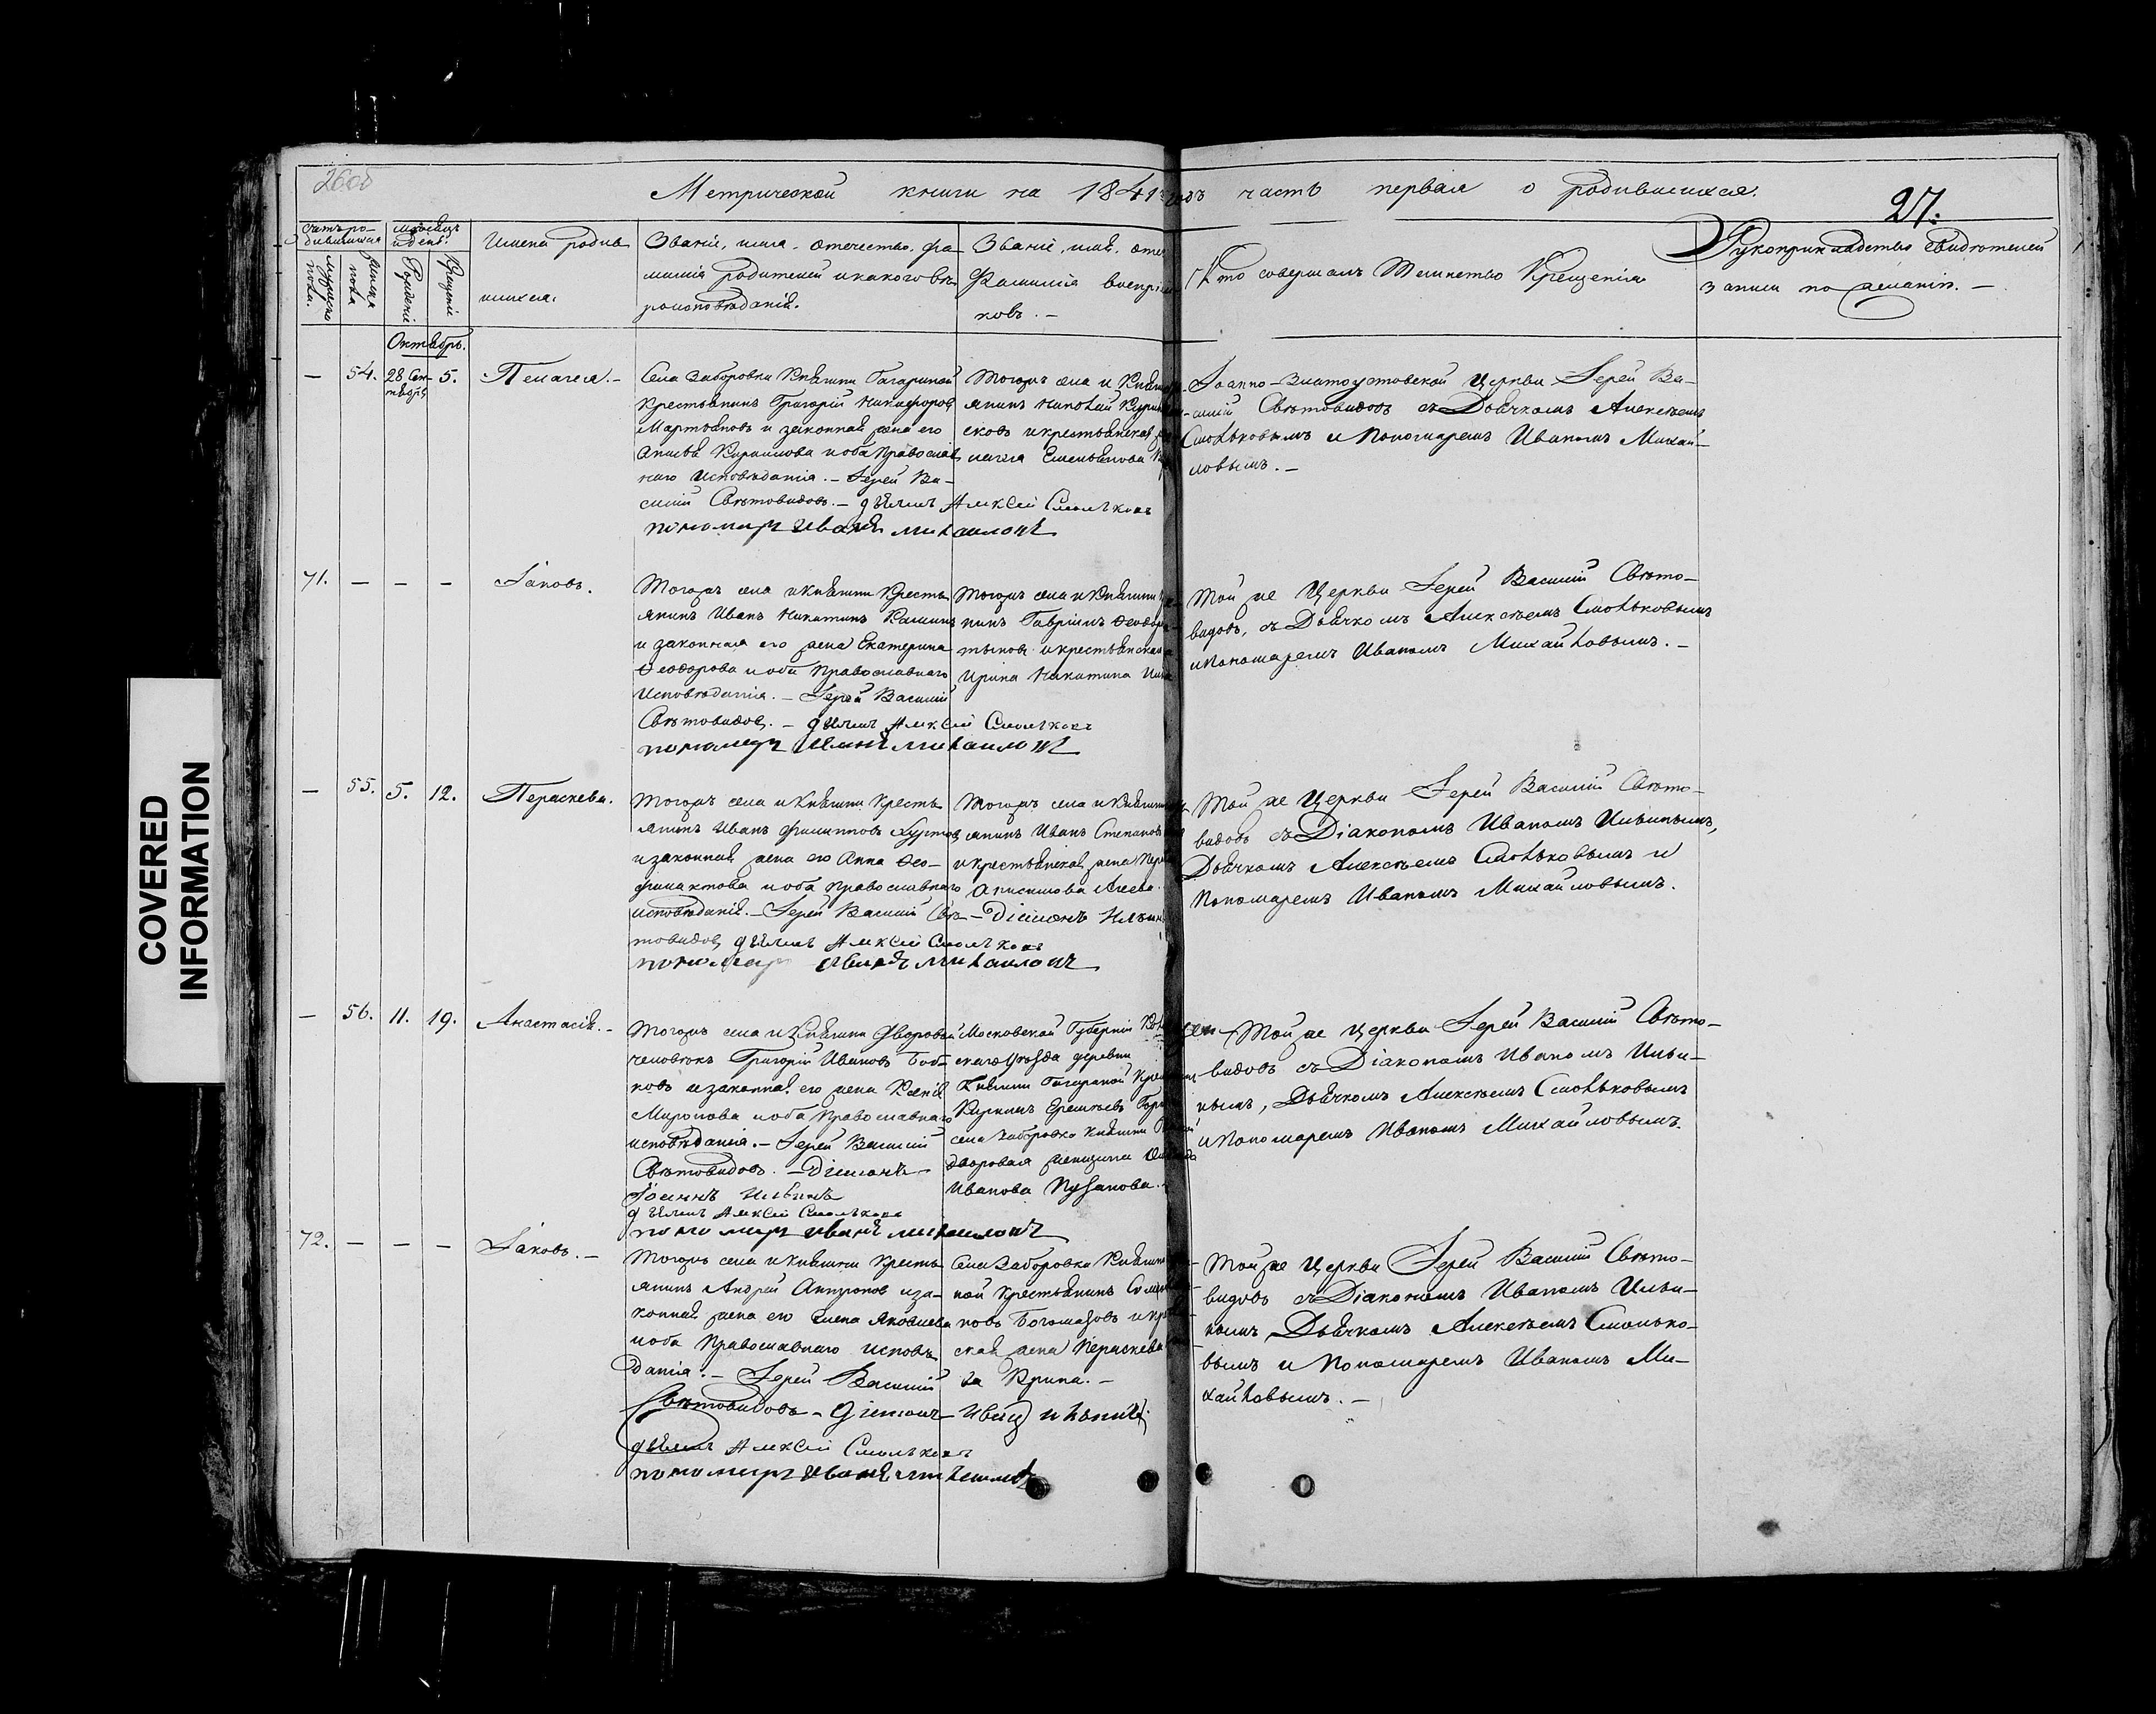 Метрической книги на 1841 годъ часть первая о родившихся.
27.
Счетъ родившихся
Мужеска пола.
Женска пола
Мѣсяцъ и день.
Рожденіе
Крещеніе
Имена родившихся.
Званіе, имя, отечество, фа-
милія родителей и какого вѣ-
роисповѣданія.
Званіе, имя, отеч
Фамилія воспріем
ковъ. —
Кто совершалъ Таинство Крещенія
Рукоприкладство свидѣтелей
записи по желанію. —
Октябрь.
— 54. 28 Сен-
тября 5. Пелагея. —
Села Заборовки Княжны Гагариной
Крестьянинъ Григорій Никифоровъ
Мартьяновъ и законная жена его
Кирилова и оба Православ
наго Исповѣданія. — Іерей Ва-
силій Свѣтовидовъ. — дьячекъ Алексей Смольковъ
пономарь Иванъ Михаиловъ
Тогожъ села и Княжны
янинъ Николай
сковъ и крестьянская
Емельянова
Іоанно-Златоустовской Церкви Іерей Ва-
силій Свѣтовидовъ съ Дьячкомъ Алексѣемъ
Смольковымъ и Пономаремъ Иваномъ Михай-
ловымъ. —
71. — — — Іаковъ.
Тогожъ села и Княжны Кресть
янинъ Иванъ Никитинъ Калининъ
и законная его жена Екатерина
Ѳеодорова и оба Православнаго
Исповѣданія. — Іерей Василій
Свѣтовидовъ. — дьячекъ Алексей Смольковъ
пономарь Иванъ Михаиловъ
Тогожъ села и Княжны
нинъ Гавріилъ Ѳеодоровъ
и крестьянская
Ирина Никитина
Той же Церкви Іерей Василій Свѣто-
видовъ, съ Дьячкомъ Алексѣемъ Смольковымъ
и Пономаремъ Иваномъ Михайловымъ. —
— 55. 5. 12. Параскева.
Тогожъ села и Княжны Кресть
янинъ Иванъ Филипповъ
и законная жена его Анна Ѳео-
филактова и оба Православнаго
исповѣданія. — Іерей Василій Свѣ-
товидовъ дьячекъ Алексей Смольковъ
пономарь Иванъ Михаиловъ
Тогожъ села и Княжны
янинъ Иванъ Степановъ
и крестьянская жена
Анисимова
— Діаконъ Ильинъ
Той же Церкви Іерей Василій Свѣто-
видовъ съ Діакономъ Иваномъ Ильинымъ,
Дьячкомъ Алексѣемъ Смольковымъ и
Пономаремъ Иваномъ Михайловымъ.
— 56. 11. 19. Анастасія. —
Тогожъ села и Княжны Дворовый
человѣкъ Григорій Ивановъ Боб-
ковъ и законная его жена Ксенія
Миронова и оба Православнаго
исповѣданія. — Іерей Василій
Свѣтовидовъ. — Діаконъ
Іоаннъ Ильинъ
дьячекъ Алексей Смольковъ
пономарь Иванъ Михаиловъ
Московской Губерніи
скаго уѣзда деревни
Княжны Гагариной
села Заборовки Княжны
дворовая женщина
Иванова Пузанова. —
Той же Церкви Іерей Василій Свѣто-
видовъ съ Діакономъ Иваномъ Ильи-
нымъ, Дьячкомъ Алексѣемъ Смольковымъ
и Пономаремъ Иваномъ Михайловымъ.
72. — — — Іаковъ. —
Тогожъ села и Княжны Кресть
янинъ Андрей Антроповъ и за-
конная жена его Елена Яковлева
и оба Православнаго исповѣ
данія. — Іерей Василій
Свѣтовидовъ — Діаконъ Иванъ Ильинъ
дьячекъ Алексей Смольковъ
пономарь Иванъ Михаиловъ
Села Заборовки Княжны
ной Крестьянинъ
новъ Богомазовъ и кр
ская жена Параскева
ва
Той же Церкви Іерей Василій Свѣто-
видовъ съ Діакономъ Иваномъ Ильи-
нымъ, Дьячкомъ Алексѣемъ Смолько-
вымъ и Пономаремъ Иваномъ Ми-
хайловымъ. —
COVERED
INFORMATION